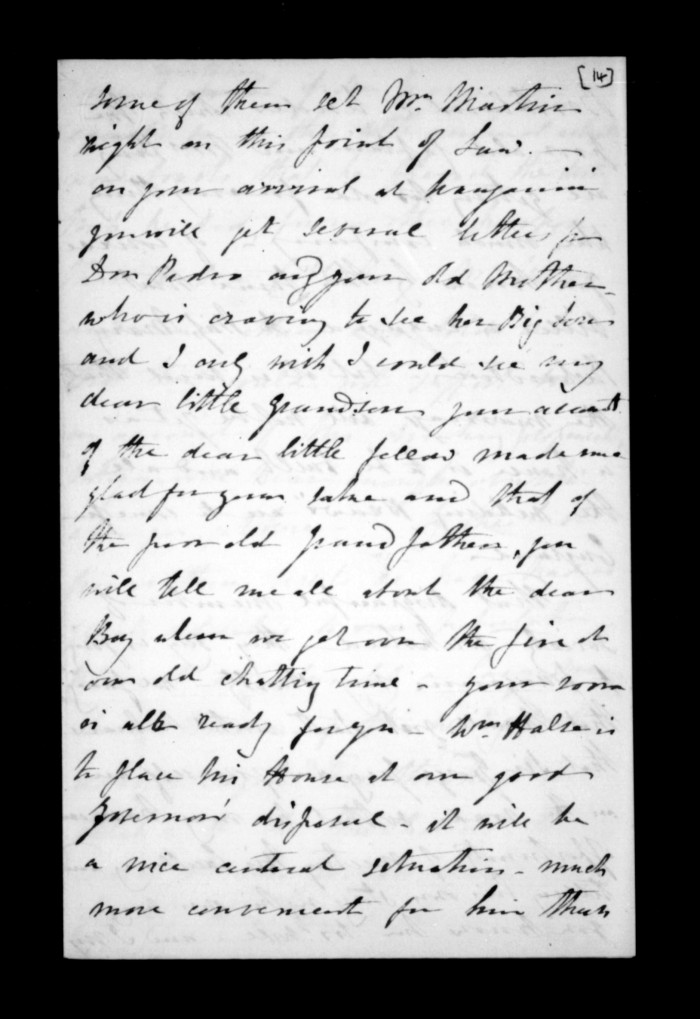 [14]
some of them set Wm. Martin
right on this point of Law. —
on your arrival at Wanganui
you will get several letters from
Don Pedro and your old Mother
who is craving to see her Big Son
and I only wish I could see my
dear little grandson your account
of the dear little fellow made me
glad for your sake and that of
the poor old Grand father, you
will tell me all about the dear
Boy when we get over the fire at
our old chatting time - your room
is all ready for you - Wm Halse is
to place his House at our good
Governor's disposal - it will be
a nice central situation - much
more convenient for him than